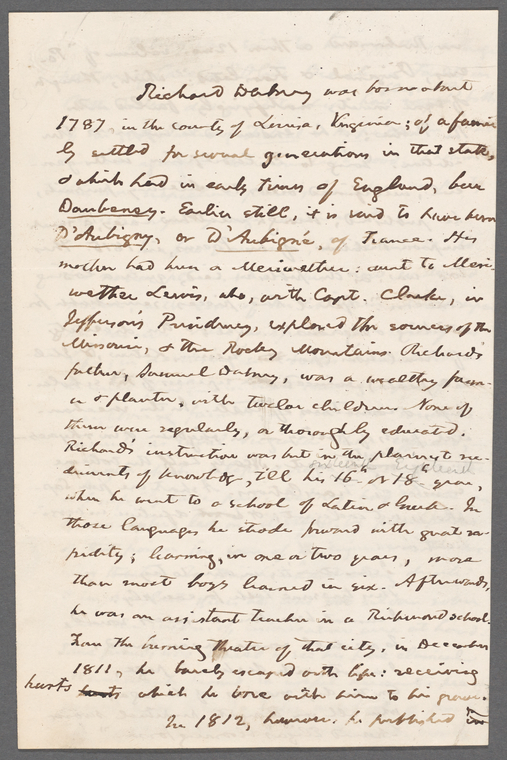 Richard Dabney was born about
1787, in the county of Louisa, Virginia; of a fami-
ly settled for several generations in that state,
& which had in early times of England, been
Daubeney. Earlier still, it is said to have been
D'Aubigny, or D'Aubigné, of France. His
mother had been a Meriwether: aunt to Meri-
wether Lewis, who, with Capt. Clarke, in
Jefferson's Presidency, explored the sources of the
Missouri, & the Rocky Mountains. Richard's
father, Samuel Dabney, was a wealthy farm-
er & planter, with twelve children. None of
them were regularly, or thoroughly educated.
Richard's instruction was but in the plainest ru-
diments of knowledge, till his 16th or 18th year,
when he went to a school of Latin & Greek. In
those languages he strode forward with great ra-
pidity; learning, in one or two years, more
than most boys learned in six. Afterwards,
he was an assistant teacher in a Richmond school.
From the burning theatre of that city, in December
1811, he barely escaped with life: receiving
hurts which he bore with him to his grave.
In 1812, however, he published in